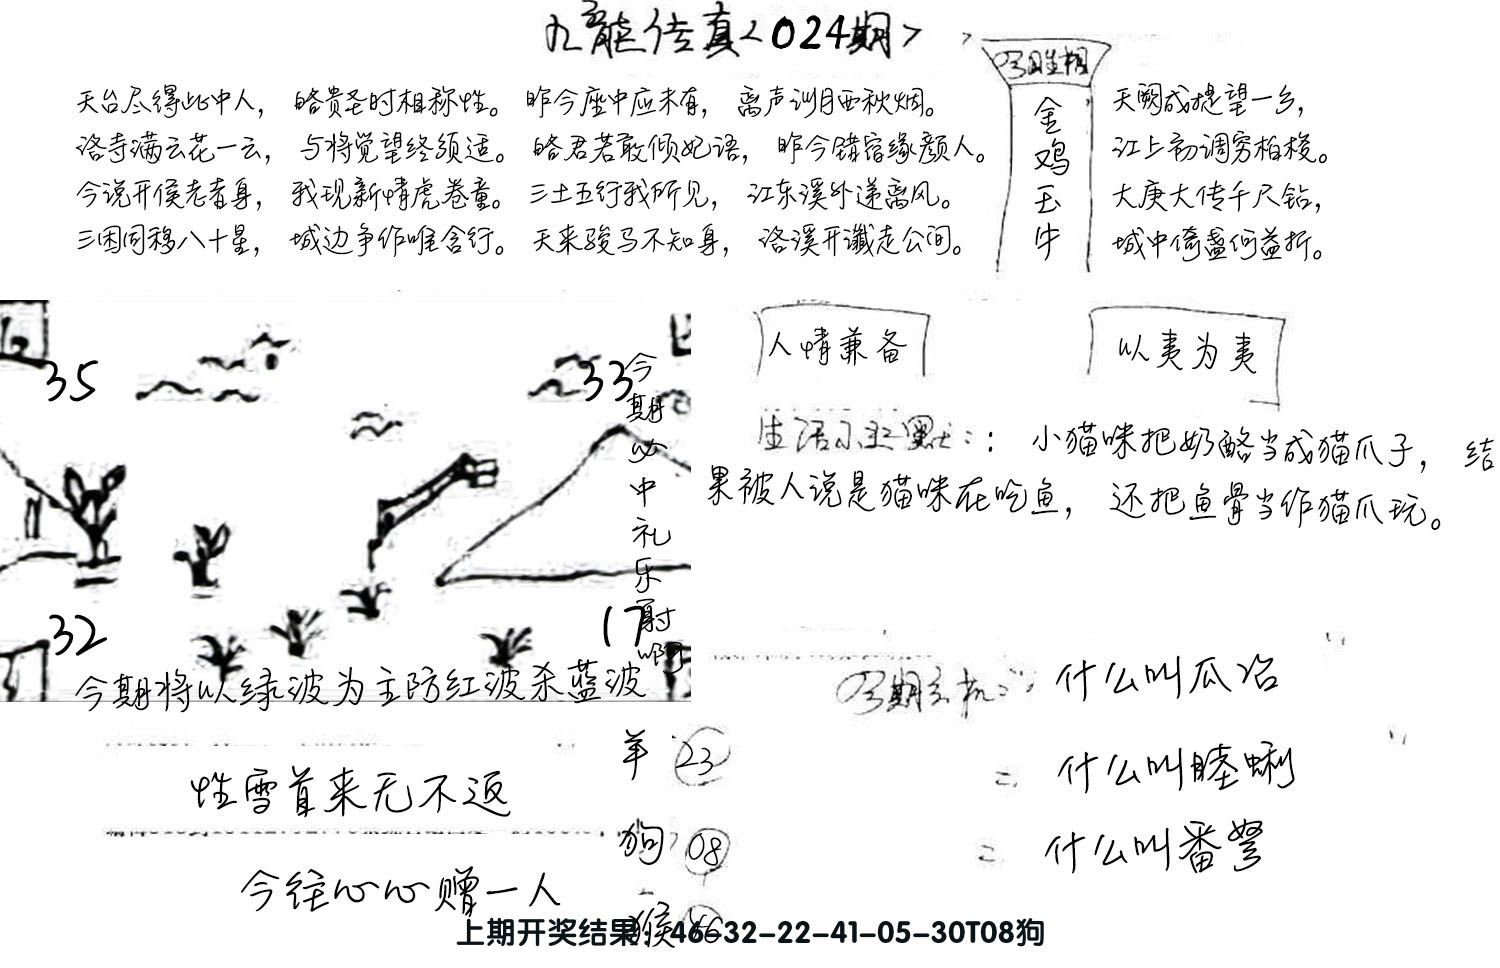 九龙传真<024期>
天台尽得此中人，皓贵圣时相称性。昨今座中应未有，离声训月西秋烟。
洛寺满云花一云，与将觉望终须适。皓君若敢倾妃语，昨今错宿缘颜人。
今说开侯老者身，我现新情虎卷童。三土五行我所见，江东溪外递离风。
三困同移八十星，城边争作唯含行。天来骏马不知身，洛溪开谶走公间。
金鸡玉牛
天阙成提望一乡，
江上初调穷柏梭。
大庚大传千尺钻，
城中倚盏何益折。
35
33
32
17
今期必中礼乐射啊
今期将以绿波为主防红波杀蓝波
人情兼备
以夷为夷
生活小幽默：：小猫咪把奶酪当成猫爪子，结
果被人说是猫咪在吃鱼，还把鱼骨当作猫爪玩。
今期玄机：什么叫瓜冶
= 什么叫睦蜊
= 什么叫番弩
性雪首来无不返
今往心心赠一人
羊 23
狗 08
猴
上期开奖结果：46-32-22-41-05-30T08狗